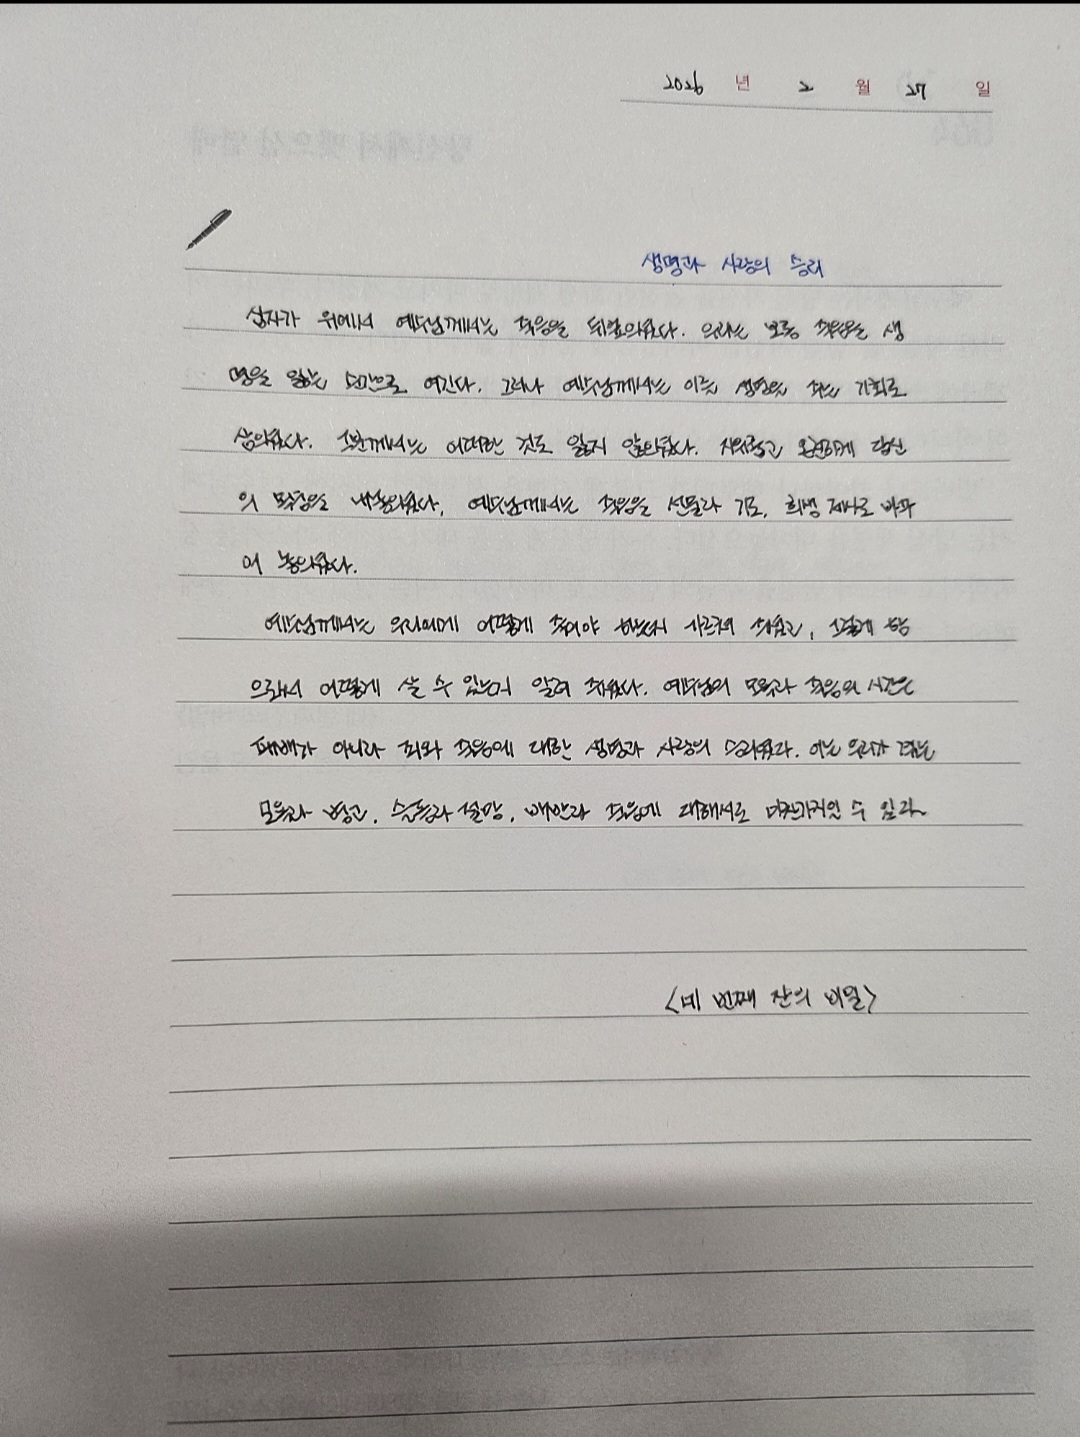 2026 년 2 월 27 일
생명과 사랑의 승리
십자가 위에서 예수님께서는 죽음을 뒤엎으셨다. 우리는 보통 죽음을 생
명을 잃는 순간으로 여긴다. 그러나 예수님께서는 이를 생명을 주는 기회로
삼으셨다. 그분께서는 어떠한 것도 잃지 않으셨다. 자유롭고 온전하게 당신
의 목숨을 내놓으셨다. 예수님께서는 죽음을 선물과 기도, 희생 제사로 바꾸
어 놓으셨다.
예수님께서는 우리에게 어떻게 죽어야 하는지 가르쳐 주셨고, 그렇게 함
으로써 어떻게 살 수 있는지 알려 주셨다. 예수님의 모욕과 죽음의 시간은
패배가 아니라 죄와 죽음에 대한 생명과 사랑의 승리였다. 이는 우리가 겪는
모욕과 병고, 슬픔과 절망, 배반과 죽음에 대해서도 마찬가지일 수 있다.
<네 번째 잔의 비밀>